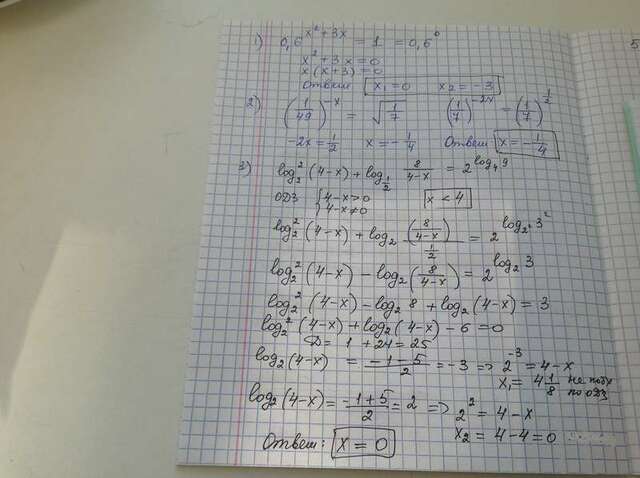 1) 0,6^(x²+3x) = 1 = 0,6⁰
x²+3x=0
x(x+3)=0
Ответ x₁=0 x₂=-3
2) (1/49)^(-x) = √(1/7) (1/7)^(-2x) = (1/7)^(1/2)
-2x=1/2 x=-1/4 Ответ x=-1/4
3) log₂²(4-x)+log_(1/2) 8/(4-x) = 2^(log₄9)
ОДЗ {4-x>0 x<4
4-x≠0
log₂²(4-x)+log₂(8/(4-x))/(1/2) = 2^(log_(2²)3²)
log₂²(4-x)-log₂(8/(4-x))=2^(log₂3)
log₂²(4-x)-log₂8+log₂(4-x)=3
log₂²(4-x)+log₂(4-x)-6=0
D= 1+24=25
log₂(4-x) = (-1-5)/2 = -3 => 2⁻³=4-x
x₁=4 1/8 не подх
по ОДЗ
log₂(4-x)=(-1+5)/2=2 => 2²=4-x
x₂=4-4=0
Ответ: x=0
5